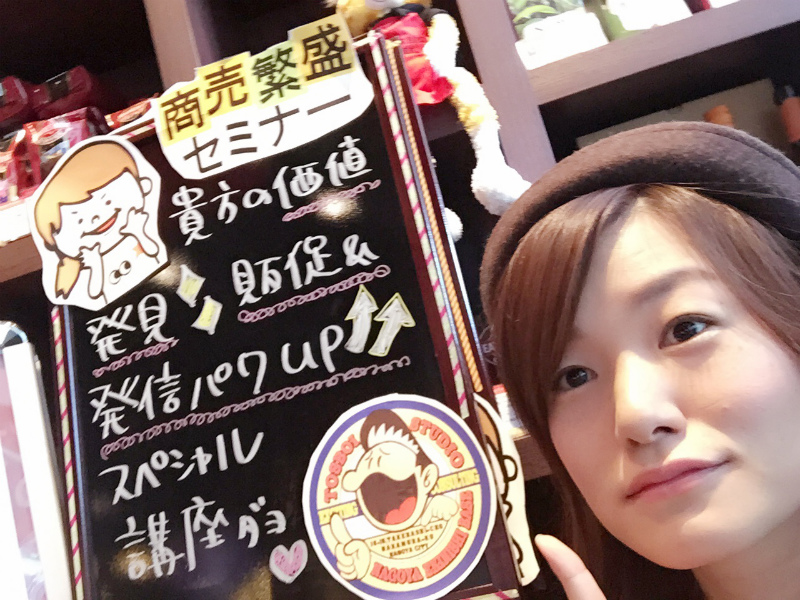 商売繁盛
セミナー
貴方の価値
発見 販促&
発信パワUP
スペシャル
講座ダョ
TOSBOI STUDIO
NAGOYA